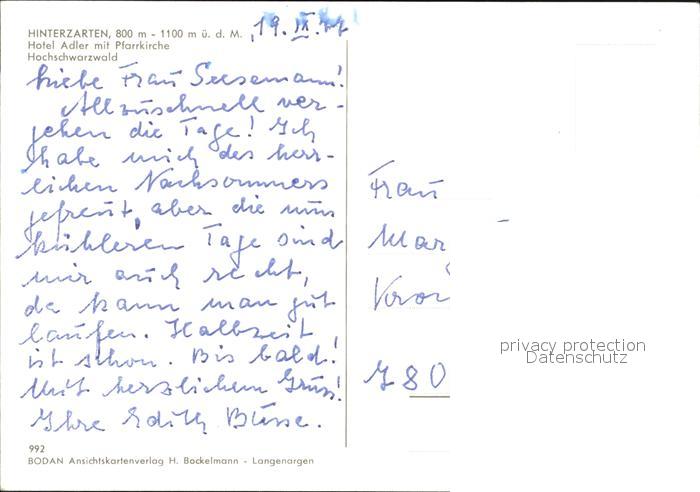 HINTERZARTEN, 800 m - 1100 m ü. d. M.
Hotel Adler mit Pfarrkirche
Hochschwarzwald
19. IX. 77
Liebe Frau Seesemann!
Allzuschnell ver-
gehen die Tage! Ich
habe mich des herr-
lichen Nachsommers
gefreut, aber die nun
kühleren Tage sind
mir auch recht,
da kann man gut
laufen. Halbzeit
ist schon. Bis bald!
Mit herzlichem Gruss!
Ihre Edith Busse.
Frau
Mar
780
privacy protection
Datenschutz
992
BODAN Ansichtskartenverlag H. Bockelmann - Langenargen